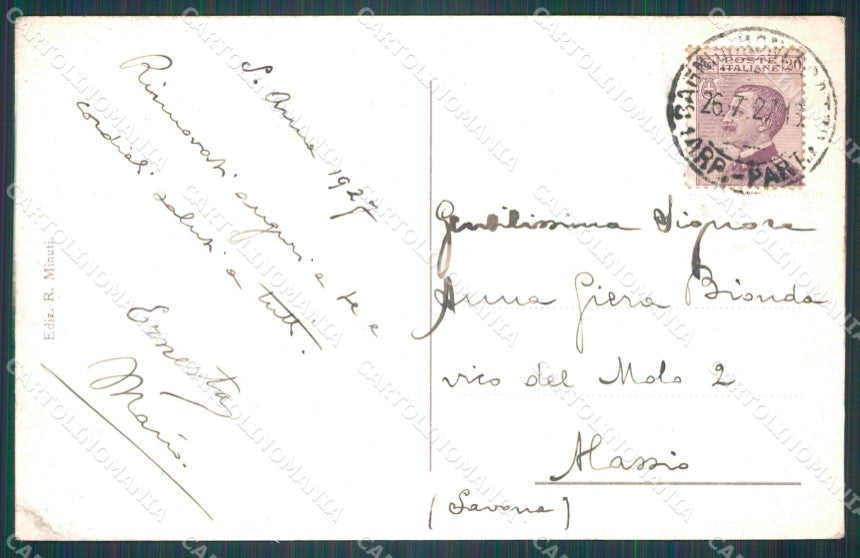 S. Anna 1927
Rinnovati auguri a te e
cordiali saluti a tutti.
Ernesta
Mario.
Ediz. R. Minuti.
POSTE
ITALIANE
20
26.7.27.13
(ARR.-PAR.)
Gentilissima Signora
Anna Giera Bionda
vico del Molo 2
Alassio
(Savona)
CARTOLINOMANIA